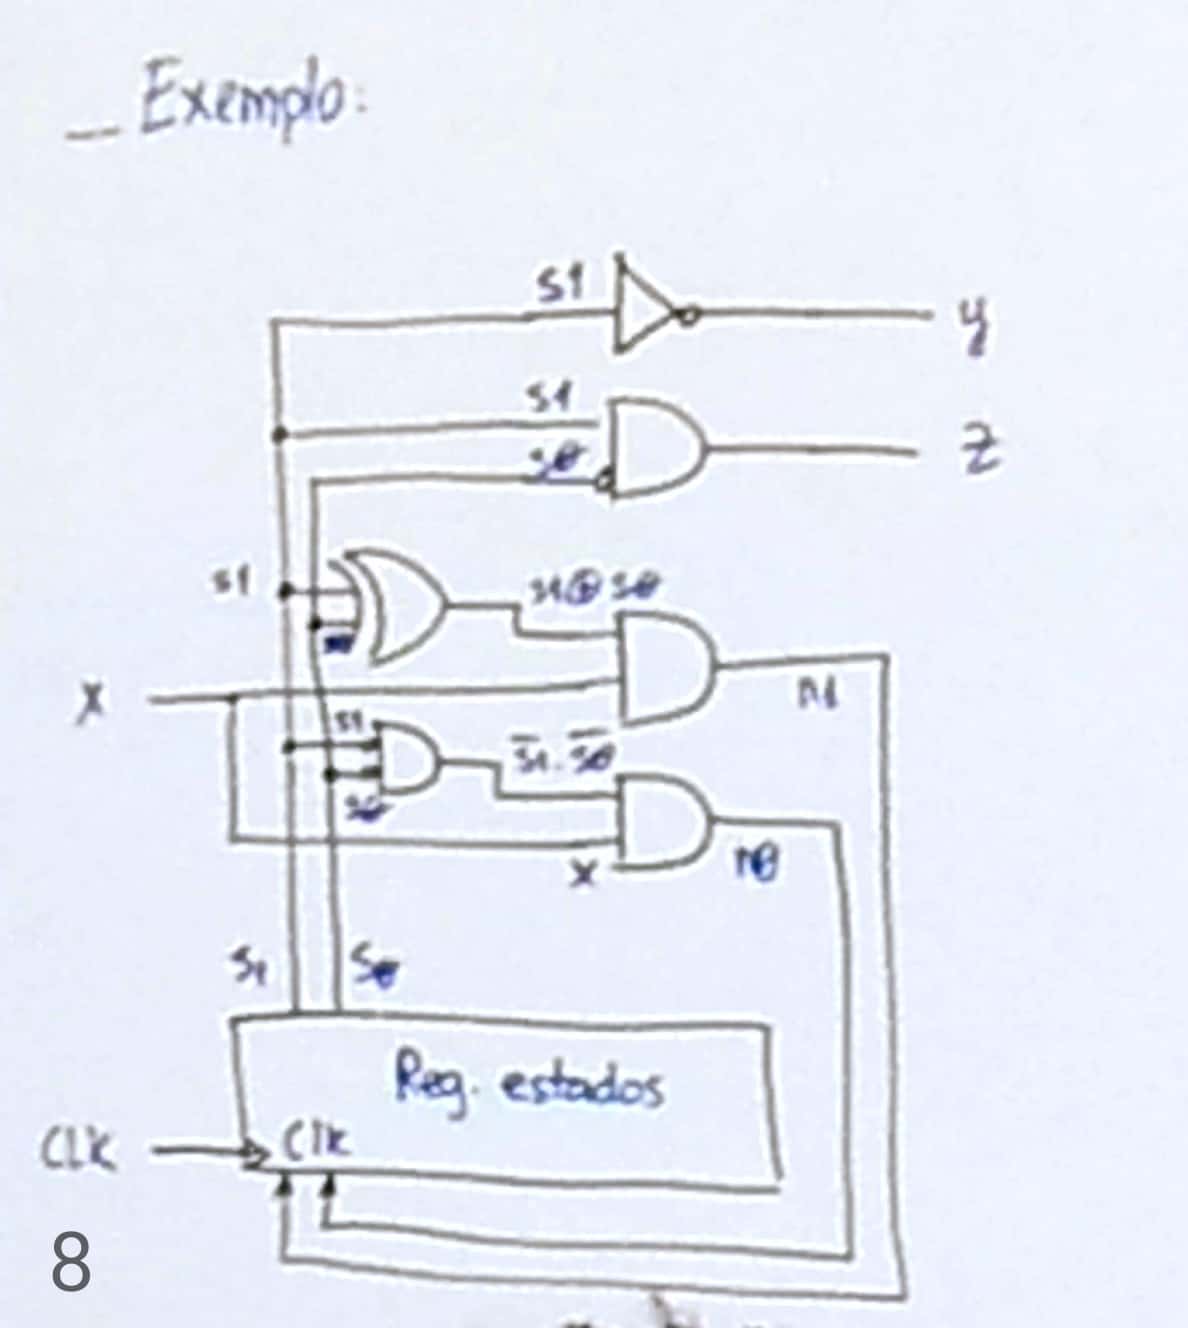 _ Exemplo:
S1
y
S1
SØ
Z
S1
S1⊕SØ
X
n1
S1
S̅1̅.S̅Ø̅
SØ
nØ
X
S1 SØ
Reg. estados
CLK Clk
8